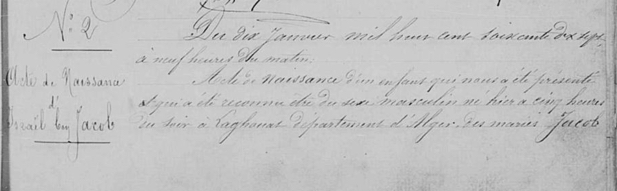 Nº 2
Acte de Naissance
d'
Israël ben Jacob
Du dix Janvier mil huit cent soixante dix sept
à neuf heures du matin;
Acte de naissance d'un enfant qui nous a été présenté
et qui a été reconnu être du sexe masculin né hier à cinq heures
du soir à Laghouat département d'Alger, des mariés Jacob